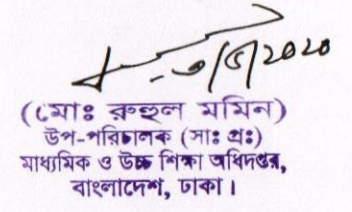 ৩/৫/2020
(মোঃ রুহুল মমিন)
উপ-পরিচালক (সাঃ প্রঃ)
মাধ্যমিক ও উচ্চ শিক্ষা অধিদপ্তর,
বাংলাদেশ, ঢাকা।